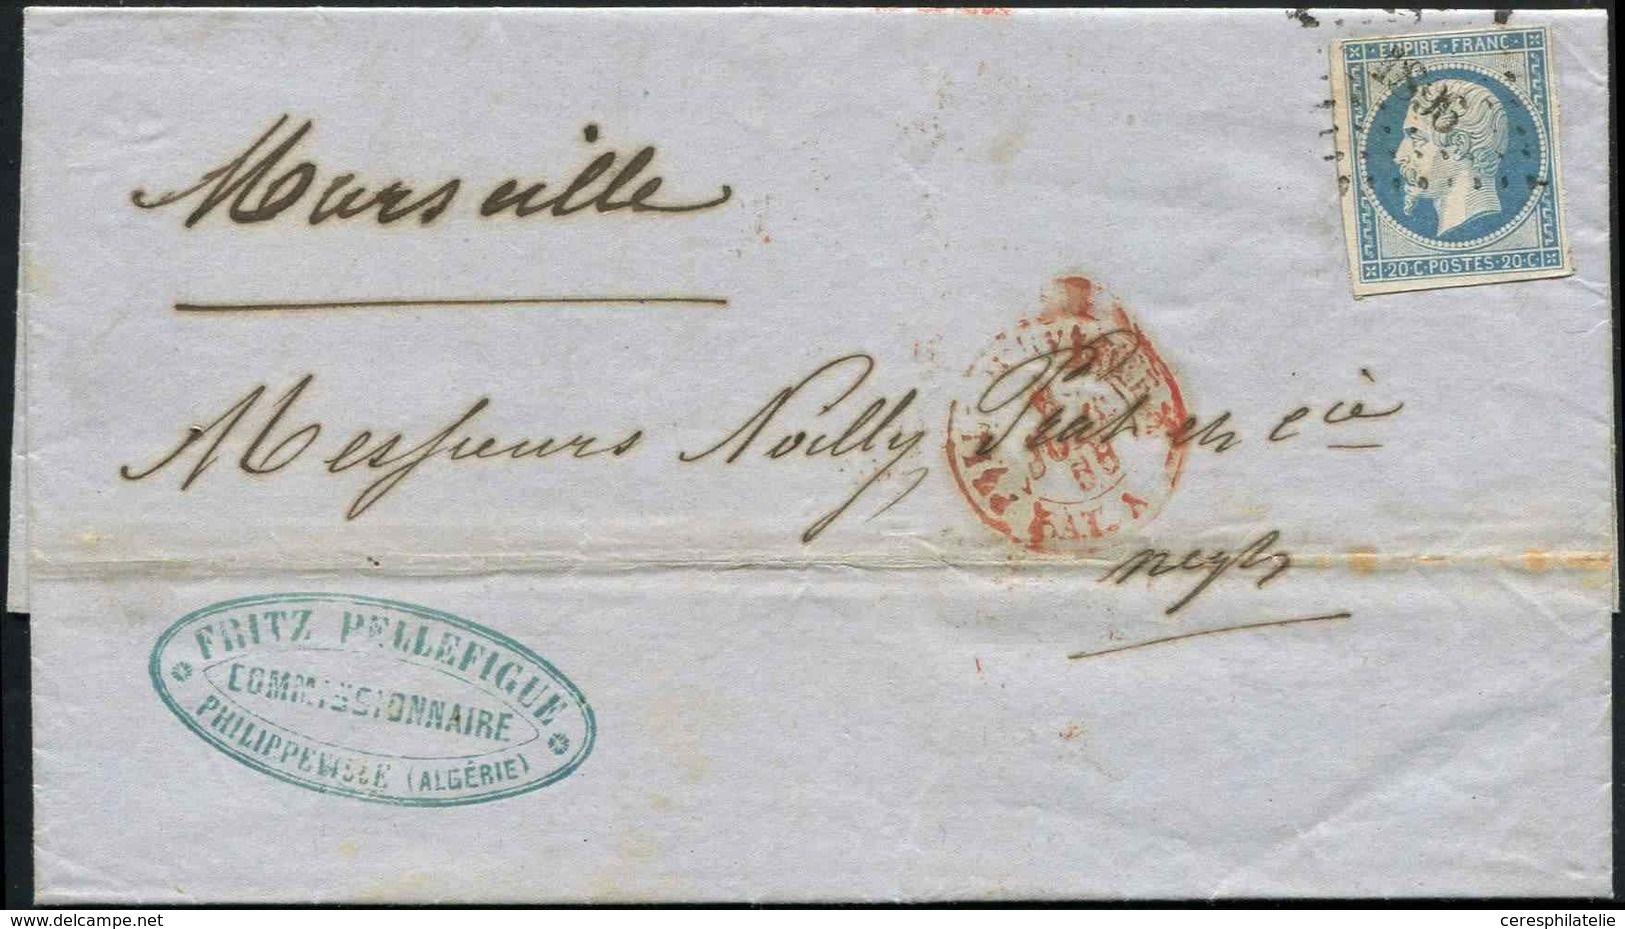 EMPIRE · FRANC ·
20 · C · POSTES · 20 · C
Marseille
Messieurs Noilly Prat et Cie
negts
BAT. A
FRITZ PELLEFIGUE
COMMISSIONNAIRE
PHILIPPEVILLE (ALGÉRIE)
www.delcampe.net
ceresphilatelie